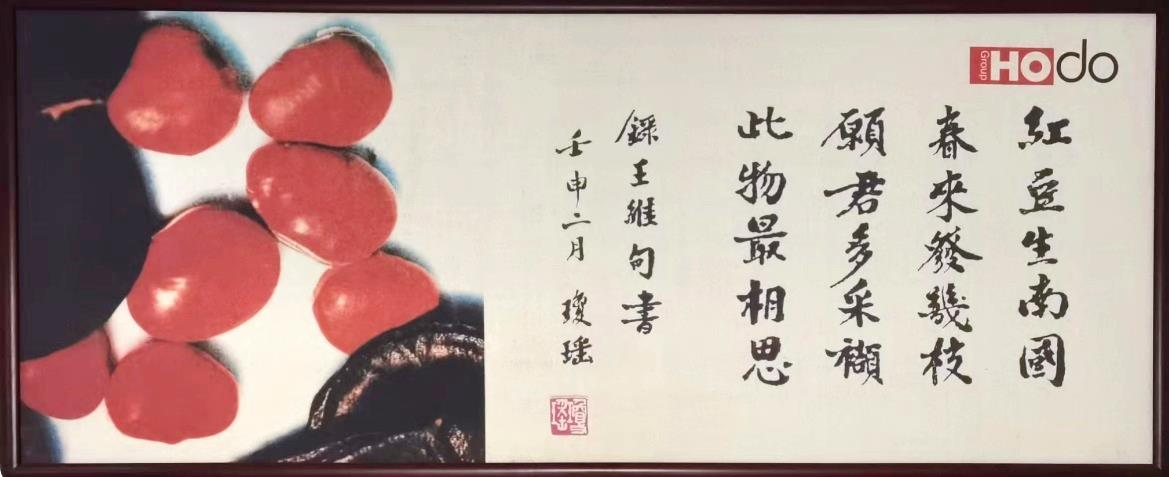 Group HOdo
紅豆生南國
春來發幾枝
願君多采襭
此物最相思
錄王維句書
壬申二月 瓊瑤
瓊瑤